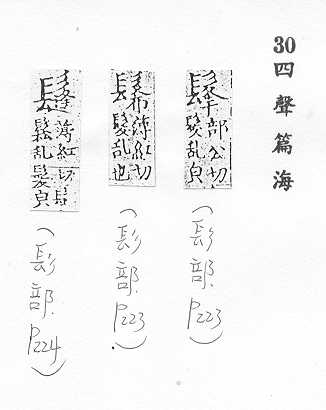 30
四聲篇海
部公切
髮乱皃
(髟部.P223)
薄紅切
髮乱也
(髟部.P223).
鬔
薄紅切
鬆乱髮皃
(髟部.P224)